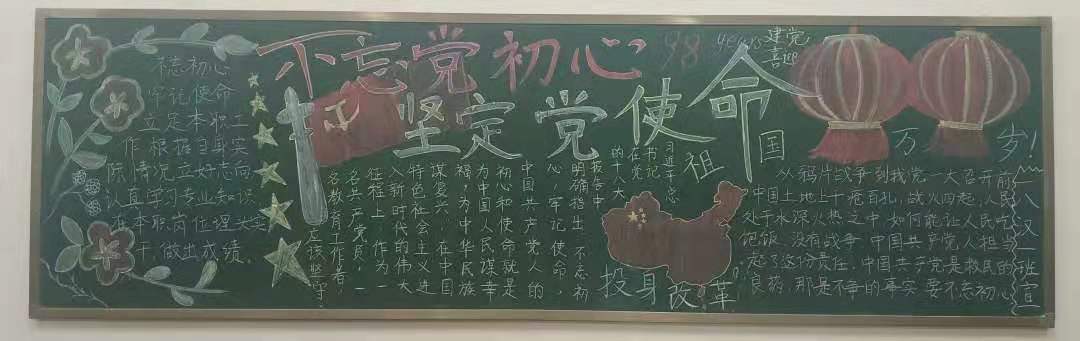 不忘党初心
坚定党使命
98 years
建党
喜迎
不忘初心
牢记使命
立足本职工
作根据自身实
际情况立好志向
认真学习专业知识
在本职岗位埋头实
干,做出成绩。
习近平总
书记
在党
的十九大
报告中
明确指出,不忘初
心,牢记使命,
中国共产党人的
初心和使命就是
为中国人民谋幸
福,为中华民族
谋复兴,在中国
特色社会主义进
入新时代的伟大
征程上,作为一
名共产党员,一
名教育工作者,
应该坚守
祖国万岁!
从鸦片战争到找党一大召开前
中国土地上千疮百孔,战火四起,人民
处于水深火热之中,如何能让人民吃
饱饭,没有战争,中国共产党人担当
起了这份责任,中国共产党是救民的
良药,那是不争的事实,要不忘初心
投身改革
一八汉一班宣